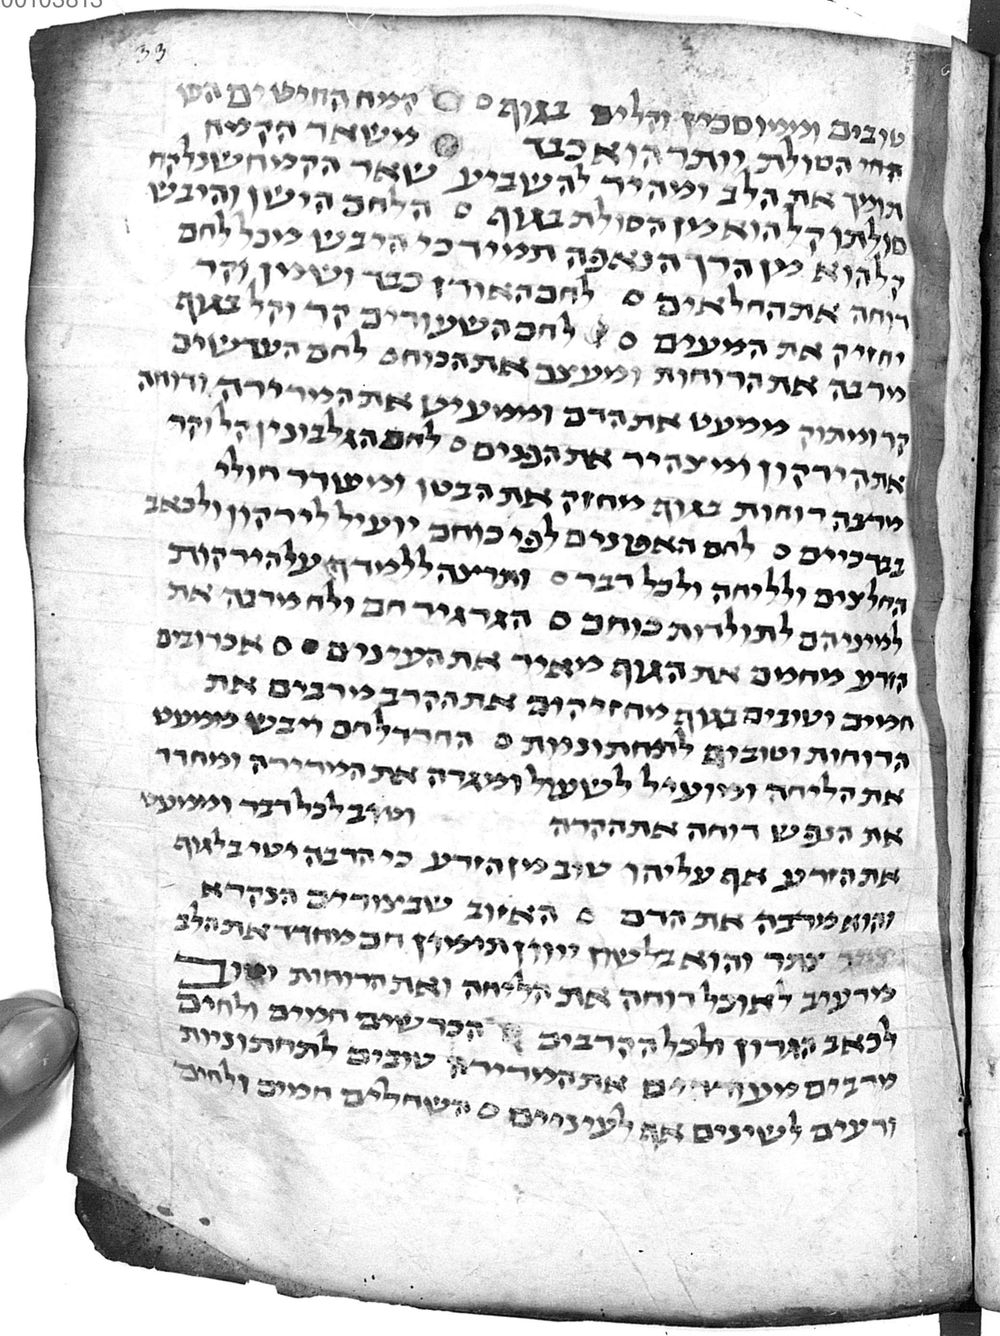 00103813
33
טובים וממוסכין וקלים בגוף ○ קמח החיטים הט
תחי הסולת יותר הוא כבד משאר הקמח
תומך את הלב ומהיר להשביע שאר הקמח שנלקח
סולתו קל הוא מן הסולת בגוף ○ הלחם הישן והיבש
קל הוא מן הרך הנאפה תמיד כי היבש מכל לחם
דוחה את החלאים ○ לחם האורז כבד ושמין וקר
יחזיק את המעים ○ לחם השעורים קר וקל בגוף
מרבה את הרוחות ומעצב את הכוח ○ לחם העדשים
קר ומתוק ממעט את הדם וממעיט את המרירה ודוחה
את הירקון ומצהיר את הפנים ○ לחם הגלבונין קל וקר
מרבה רוחות בגוף מחזק את הבטן ומשדר חולי
בברכיים ○ לחם האפונים לפי כוחם יועיל לירקון ולכאב
החלצים ולליחה ולכל דבר ○ ונרצה ללמדך על הירקות
למיניהם לתולדות כוחם ○ הגרגיר חם ולח מרבה את
הזרע מחמם את הגוף מאיר את העינים ○ ○ אכרובים
חמים וטובים בגוף מחזיקים את הקרב מרבים את
הרוחות וטובים לתחתוניות ○ החרדל חם ויבש ממעט
את הליחה ומועיל לשעול ומגרה את המרירה ומחדד
את הנפש דוחה את הקרה וטוב לכל דבר וממעט
את הזרע אף על יהו טוב מן הזרע כי הרבה יטיב לגוף
והוא מרבה את הדם ○ האיזוב שבצורים הנקרא
צתר והוא בלשון יוון תימון חם מחדד את הלב
מרעיב לאוכל דוחה את הליחה ואת הרוחות וטוב
לכאב הגרון ולכל הקרבים הכרשים חמים ולחים
מרבים מעה את המרירה טובים לתחתוניות
ורעים לשינים אף לעיניים ○ השחלים חמים ולחים